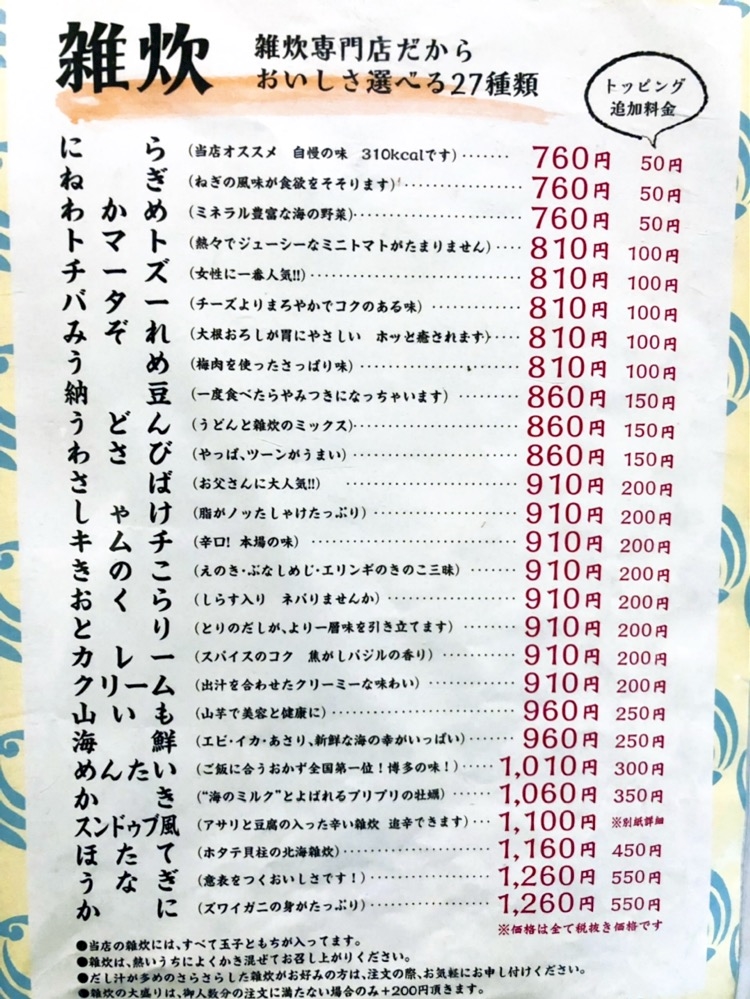 雑炊
雑炊専門店だから
おいしさ選べる27種類
トッピング
追加料金
にら (当店オススメ 自慢の味 310kcalです)······· 760円 50円
ねぎ (ねぎの風味が食欲をそそります)················ 760円 50円
わかめ (ミネラル豊富な海の野菜)······················ 760円 50円
トマト (熱々でジューシーなミニトマトがたまりません)···· 810円 100円
チーズ (女性に一番人気!!)···························· 810円 100円
バター (チーズよりまろやかでコクのある味)·············· 810円 100円
みぞれ (大根おろしが胃にやさしい ホッと癒されます)····· 810円 100円
うめ (梅肉を使ったさっぱり味)······················ 810円 100円
納豆 (一度食べたらやみつきになっちゃいます)·········· 860円 150円
うどん (うどんと雑炊のミックス)······················ 860円 150円
わさび (やっぱ、ツーンがうまい)······················ 860円 150円
さば (お父さんに大人気!!)·························· 910円 200円
しゃけ (脂がノッたしゃけたっぷり)···················· 910円 200円
キムチ (辛口! 本場の味)···························· 910円 200円
きのこ (えのき・ぶなしめじ・エリンギのきのこ三昧)······· 910円 200円
おくら (しらす入り ネバりませんか)··················· 910円 200円
とり (とりのだしが、より一層味を引き立てます)········ 910円 200円
カレー (スパイスのコク 焦がしバジルの香り)············ 910円 200円
クリーム (出汁を合わせたクリーミーな味わい)············ 910円 200円
山いも (山芋で美容と健康に)·························· 960円 250円
海鮮 (エビ・イカ・あさり、新鮮な海の幸がいっぱい)······ 960円 250円
めんたい (ご飯に合うおかず全国第一位!博多の味!)····· 1,010円 300円
かき (“海のミルク”とよばれるプリプリの牡蠣)········ 1,060円 350円
スンドゥブ風 (アサリと豆腐の入った辛い雑炊 追辛できます)··· 1,100円 ※別紙詳細
ほたて (ホタテ貝柱の北海雑炊)······················ 1,160円 450円
うなぎ (意表をつくおいしさです!)·················· 1,260円 550円
かに (ズワイガニの身がたっぷり)·················· 1,260円 550円
※価格は全て税抜き価格です
●当店の雑炊には、すべて玉子ともちが入ってます。
●雑炊は、熱いうちによくかき混ぜてお召し上がりください。
●だし汁が多めのさらさらした雑炊がお好みの方は、注文の際、お気軽にお申し付けください。
●雑炊の大盛りは、御人数分の注文に満たない場合のみ+200円頂きます。